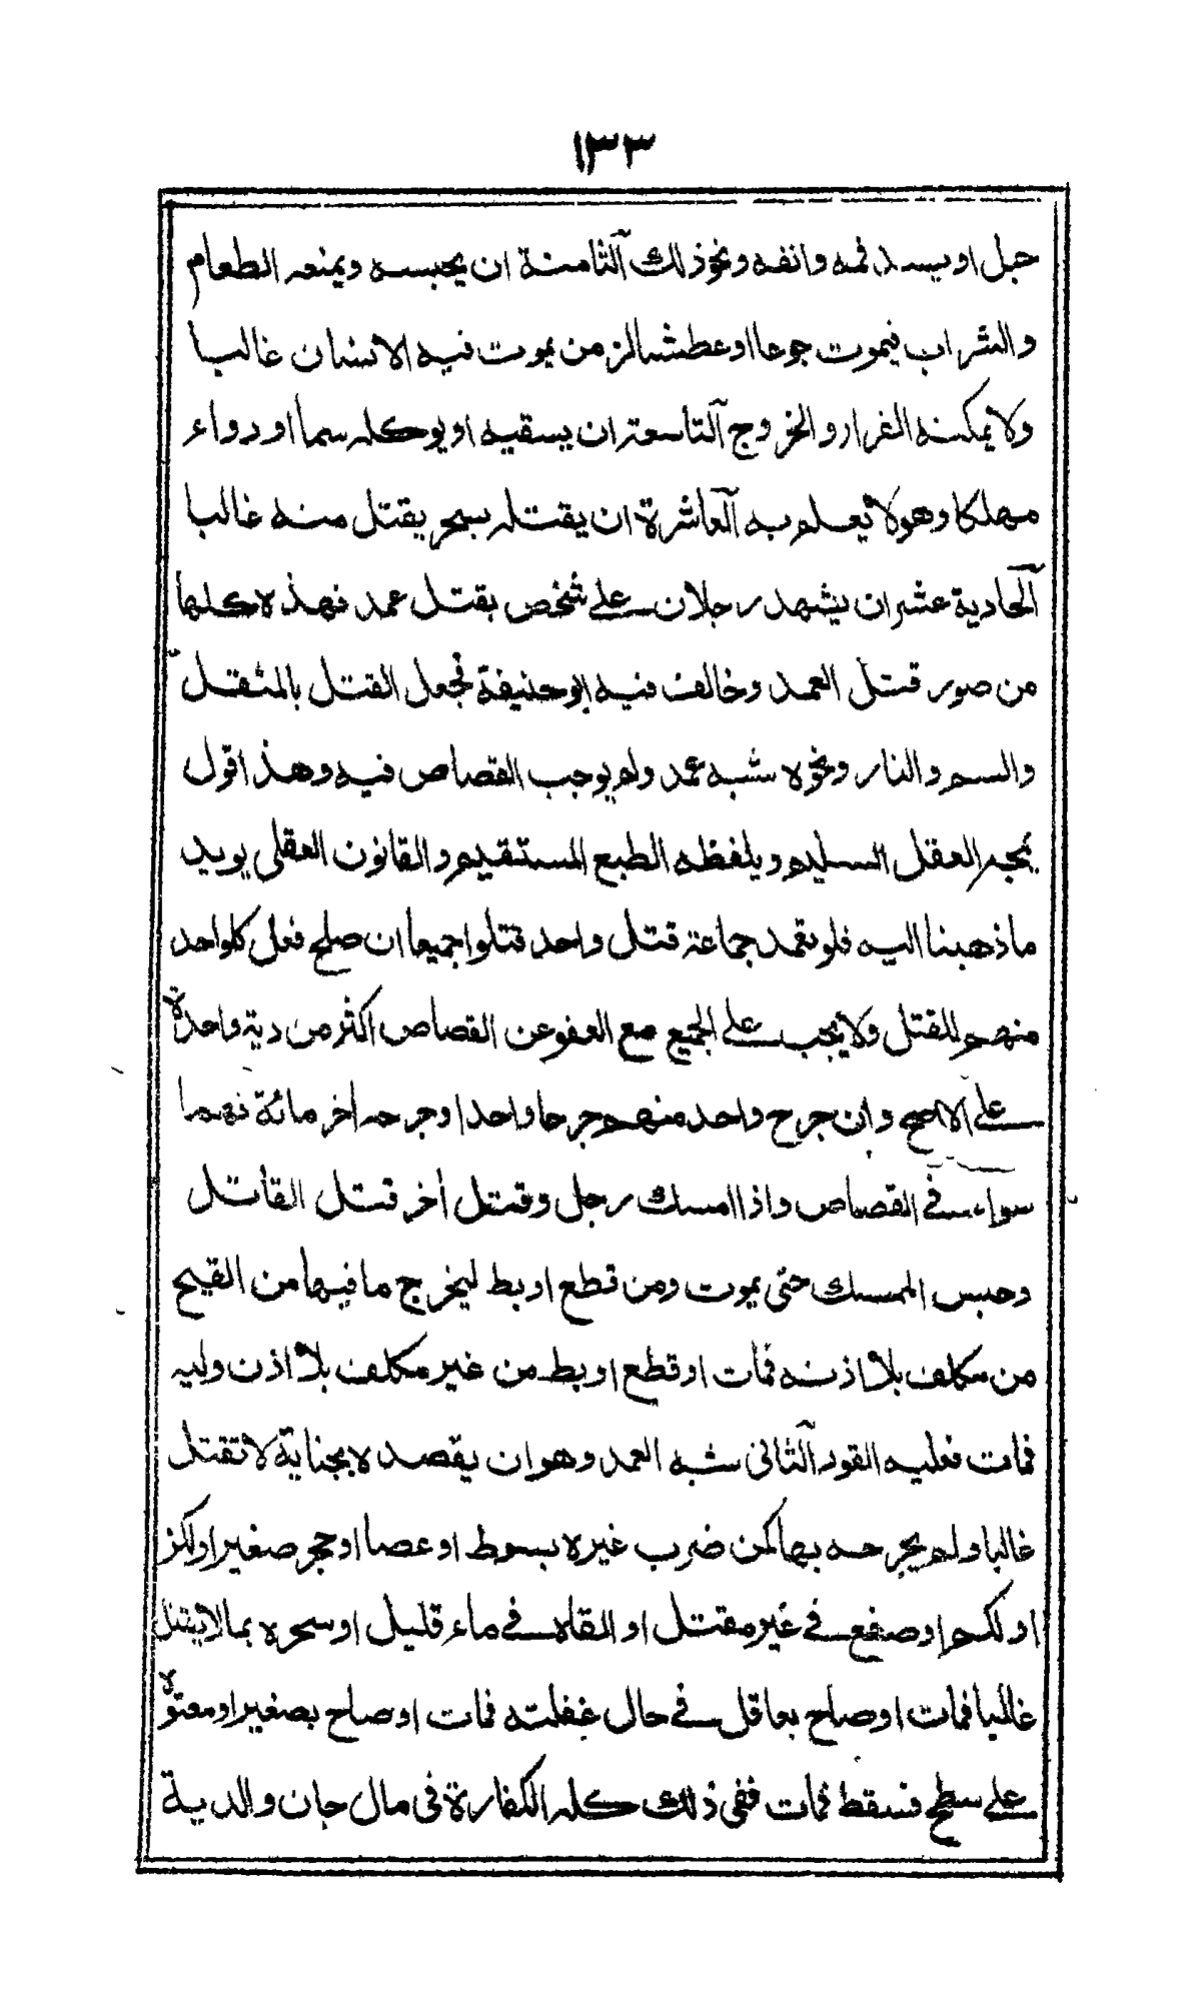 ١٣٣
حبل او يسد فمه وانفه ونحو ذلك الثامنة ان يحبسه ويمنعه الطعام
والشراب فيموت جوعا او عطشا لزمن يموت فيه الانسان غالبا
ولا يمكنه الفرار والخروج التاسعة ان يسقيه او يوكله سما او دواء
مهلكا وهو لا يعلم به العاشرة ان يقتله بسحر يقتل منه غالبا
الحادية عشر ان يشهد رجلان على شخص بقتل عمد فهذه كلها
من صور قتل العمد وخالف فيه ابو حنيفة فجعل القتل بالمثقل
والسم والنار ونحوه شبه عمد ولم يوجب القصاص فيه وهذا قول
يمجه العقل السليم ويلفظه الطبع المستقيم والقانون العقلي يويد
ما ذهبنا اليه فلو تعمد جماعة قتل واحد قتلوا جميعا ان صلح فعل كلواحد
منهم للقتل ولا يجب على الجميع مع العفو عن القصاص اكثر من دية واحدة
على الاصح وان جرح واحد منهم جرحا واحدا وجرحه اخر مائة فهما
سواء في القصاص واذا امسك رجل وقتل أخر قتل القاتل
وحبس الممسك حتى يموت ومن قطع او بط ليخرج ما فيها من القيح
من مكلف بلا اذنه فمات او قطع او بط من غير مكلف بلا اذن وليه
فمات فعليه القود الثاني شبه العمد وهو ان يقصده بجناية لا تقتل
غالبا ولم يجرحه بها كمن ضرب غيره بسوط او عصا او حجر صغير او لكز
او لكم او صفع في غير مقتل او القاه في ماء قليل او سحره بما لا يقتل
غالبا فمات او صاح بعاقل في حال غفلته فمات او صاح بصغير او معتوه
على سطح فسقط فمات ففي ذلك كله الكفارة في مال جان والدية